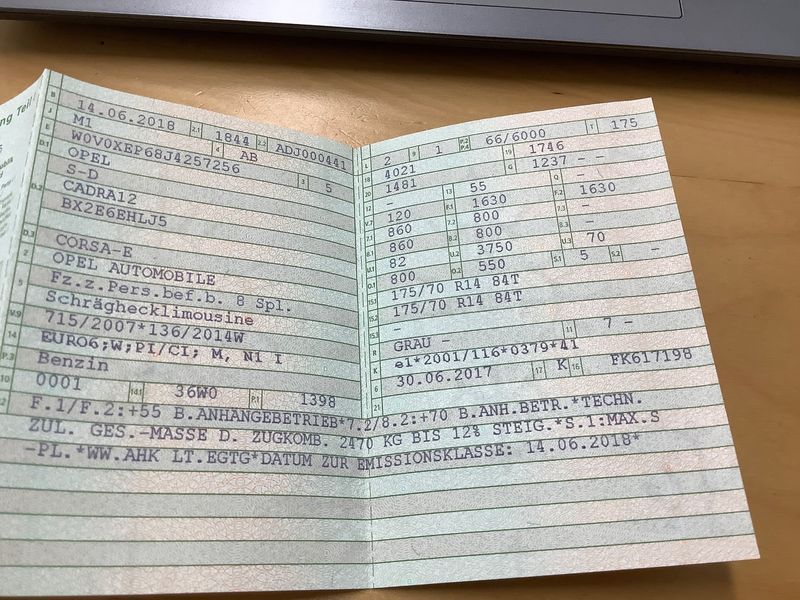 ng Teil
B 14.06.2018 2.1 1844 2.2 ADJ000441
J M1 4 AB
E W0V0XEP68J4257256 3 5
D.1 OPEL
S-D
D.2 CADRA12
BX2E6EHLJ5
D.3 CORSA-E
2 OPEL AUTOMOBILE
5 Fz.z.Pers.bef.b. 8 Spl.
Schräghecklimousine
V.9 715/2007*136/2014W
14 EURO6;W;PI/CI; M, N1 I
P.3 Benzin
10 0001 14.1 36W0 P.1 1398
L 2 9 1 P.2 P.4 66/6000 T 175
18 4021 19 1746
20 1481 G 1237 - -
12 - 13 55 Q -
V.7 120 F.1 1630 F.2 1630
7.1 860 7.2 800 7.3 -
8.1 860 8.2 800 8.3 -
U.1 82 U.2 3750 U.3 70
O.1 800 O.2 550 S.1 5 S.2 -
15.1 175/70 R14 84T
15.2 175/70 R14 84T
15.3 -
R GRAU - 11 7 -
K e1*2001/116*0379*41
6 30.06.2017 17 K 16 FK617198
21
22 F.1/F.2:+55 B.ANHANGEBETRIEB*7.2/8.2:+70 B.ANH.BETR.*TECHN.
ZUL. GES.-MASSE D. ZUGKOMB. 2470 KG BIS 12% STEIG.*S.1:MAX.S
-PL.*WW.AHK LT.EGTG*DATUM ZUR EMISSIONSKLASSE: 14.06.2018*